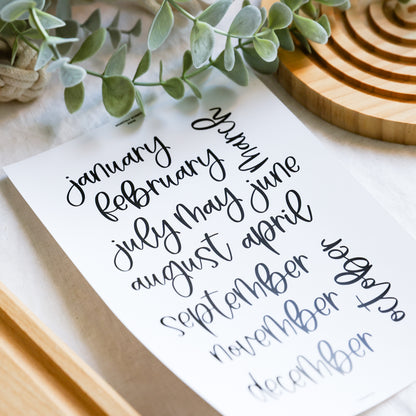 january
february
march
july may june
august april
september
october
november
december